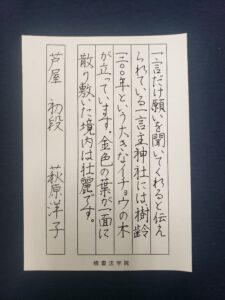 一言だけ願いを聞いてくれると伝え
られている一言主神社には、樹齢
一二〇〇年という大きなイチョウの木
が立っています。金色の葉が一面に
散り敷いた境内は壮麗です。
芦屋 初段 萩原洋子
書法学院